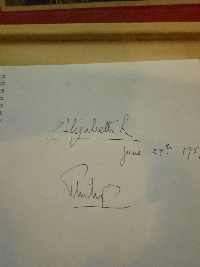 Elizabeth R
June 29th
Philip